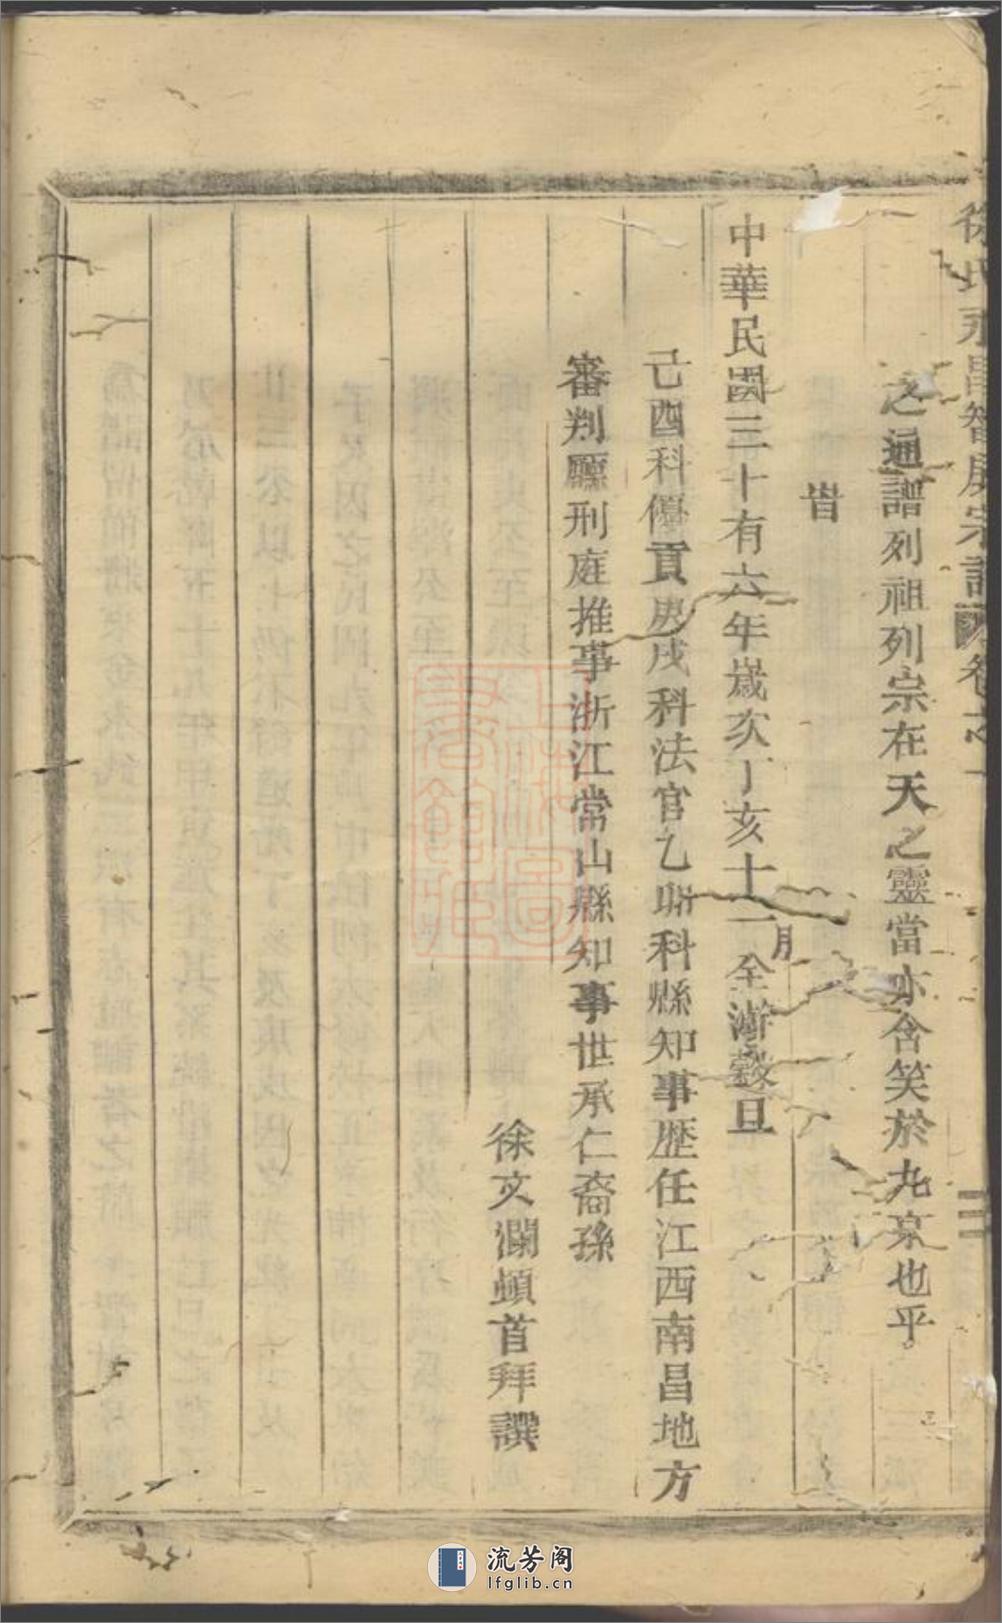 徐氏永昌智房宗譜 卷之一
之通譜列祖列宗在天之靈當亦含笑於九京也乎
旹
中華民國三十有六年歲次丁亥十一月全澣穀旦
己酉科優貢庚戌科法官乙卯科縣知事歷任江西南昌地方
審判廳刑庭推事浙江常山縣知事世承仁裔孫
徐文瀾頓首拜譔
流芳阁
lfglib.cn